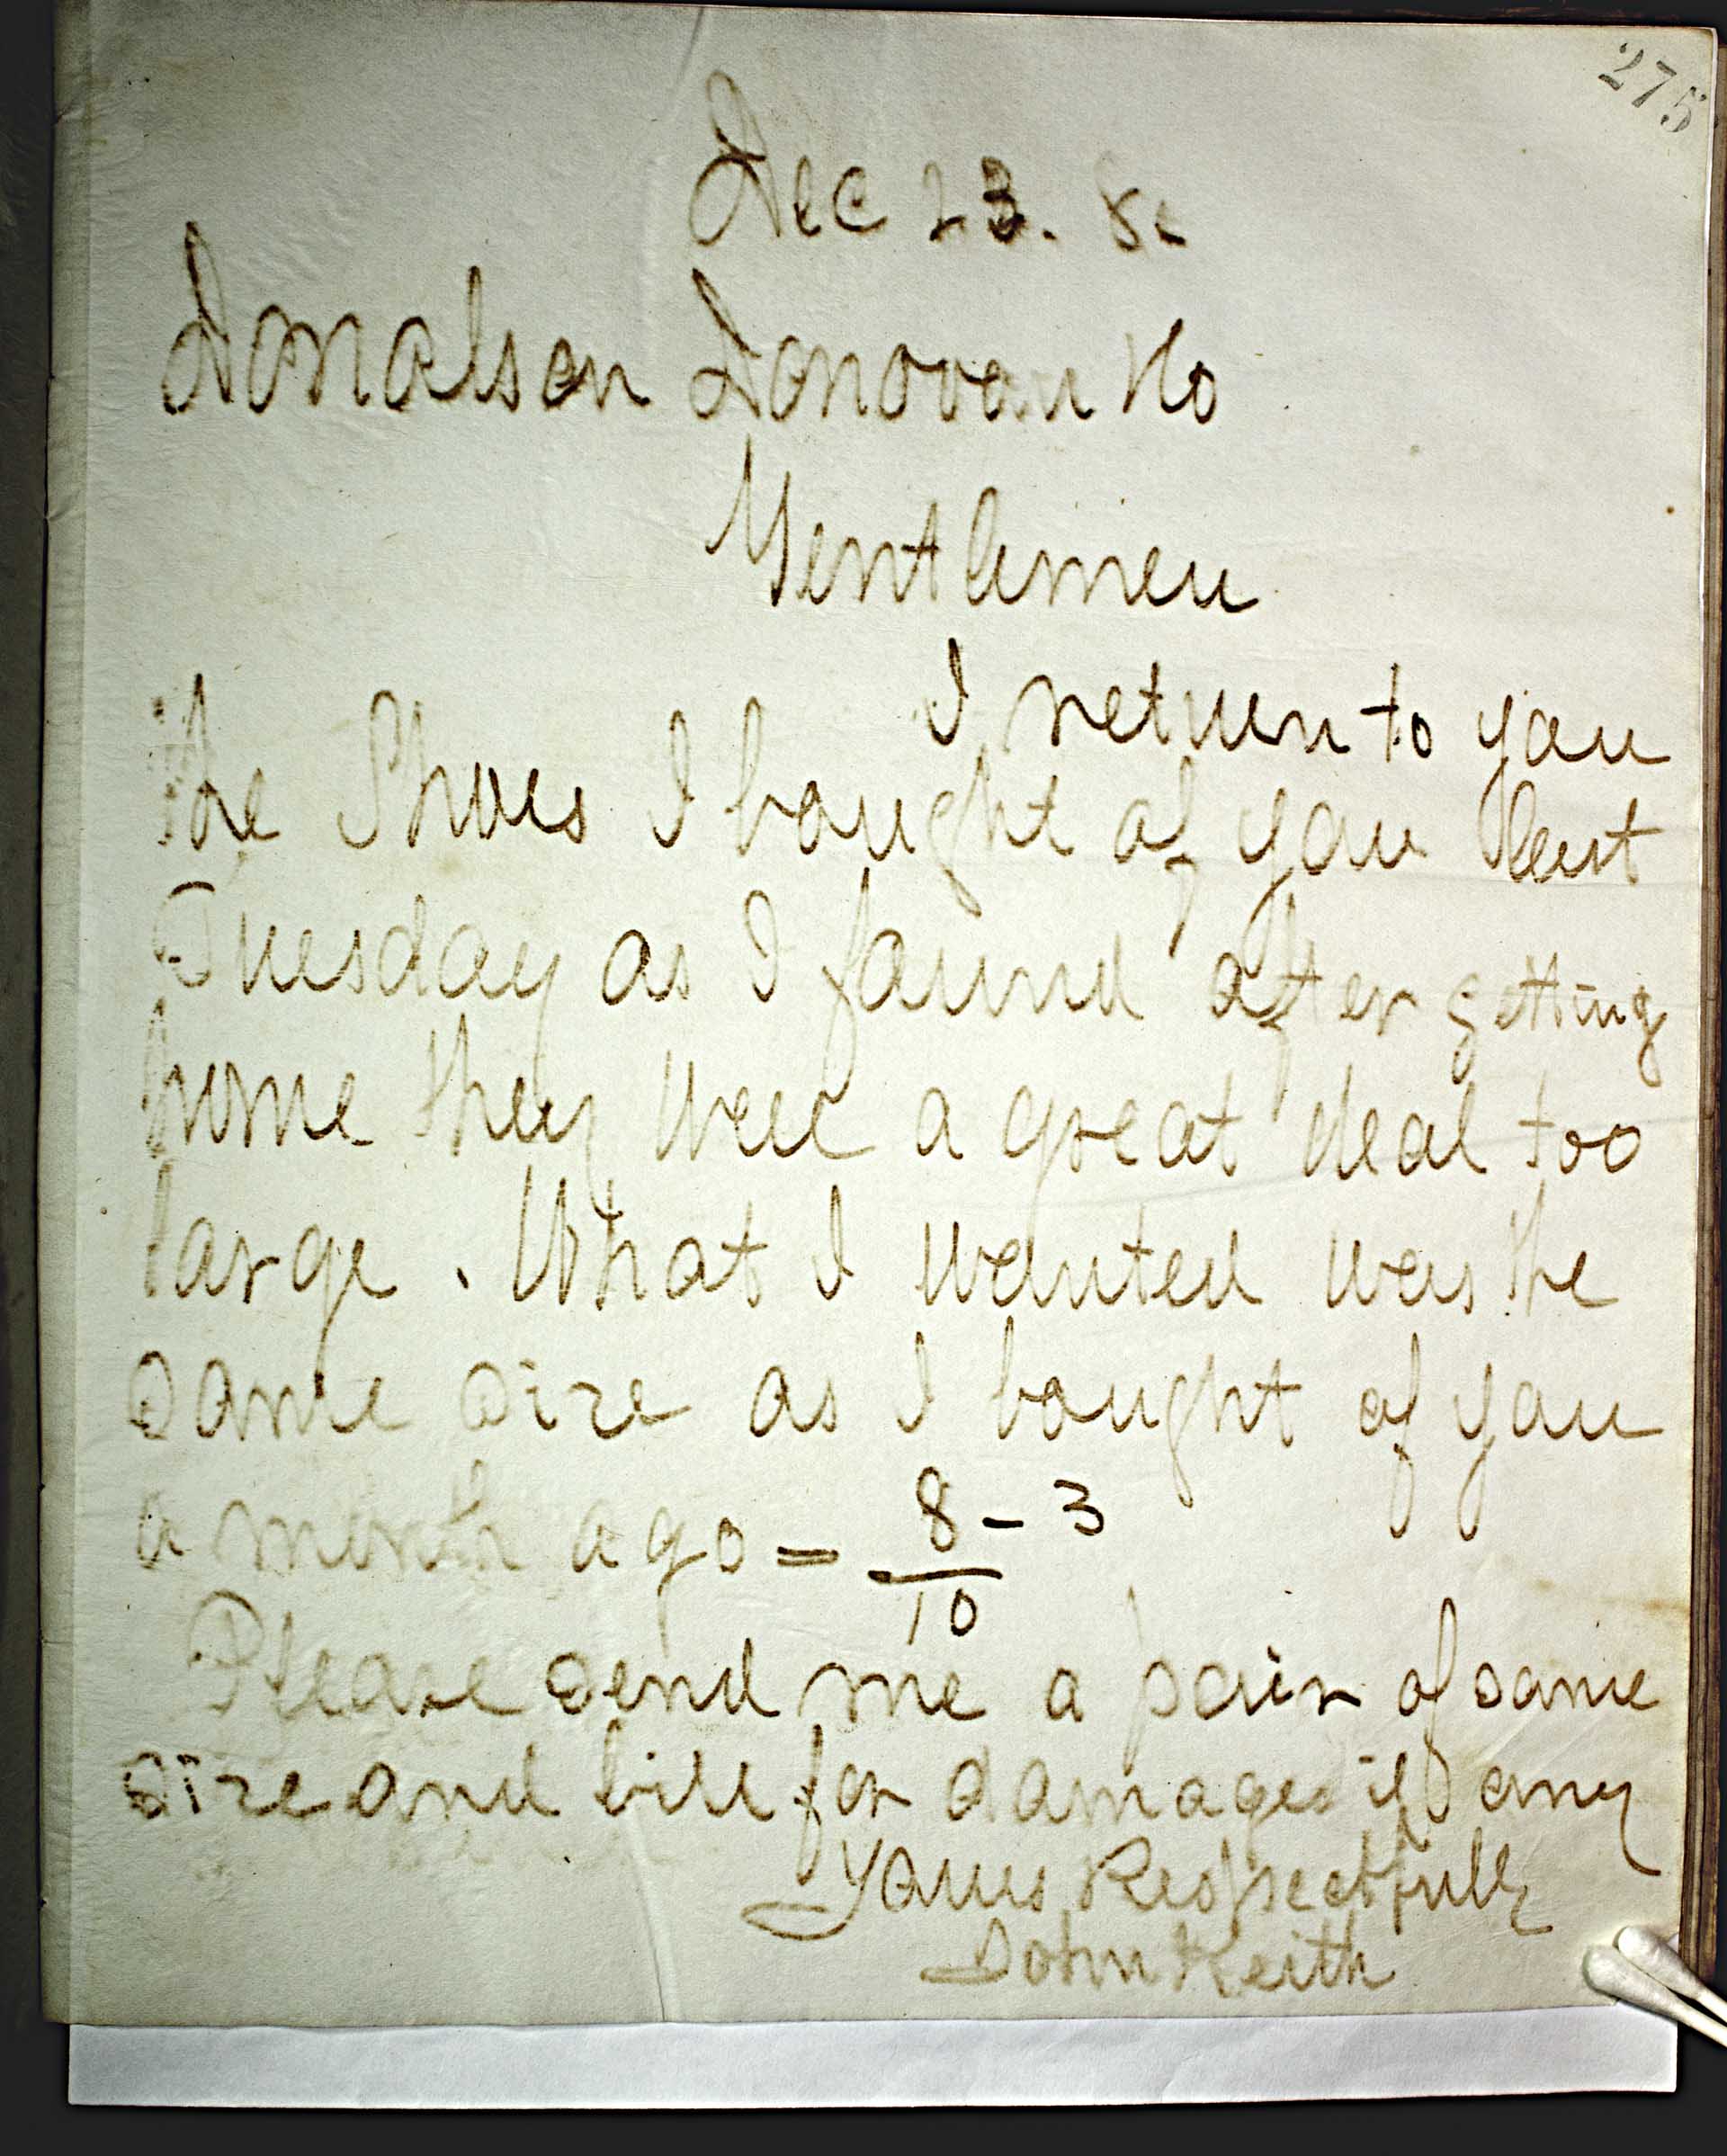 275
Dec 23. 80
Donalson Donovan &Co
Gentlemen
I return to you
the Shoes I bought of you last
Tuesday as I found after getting
home they were a great deal too
large. What I wanted was the
same size as I bought of you
a month ago = 8/10 - 3
Please send me a pair of same
size and bill for damages if any
Yours Respectfully
John Keith